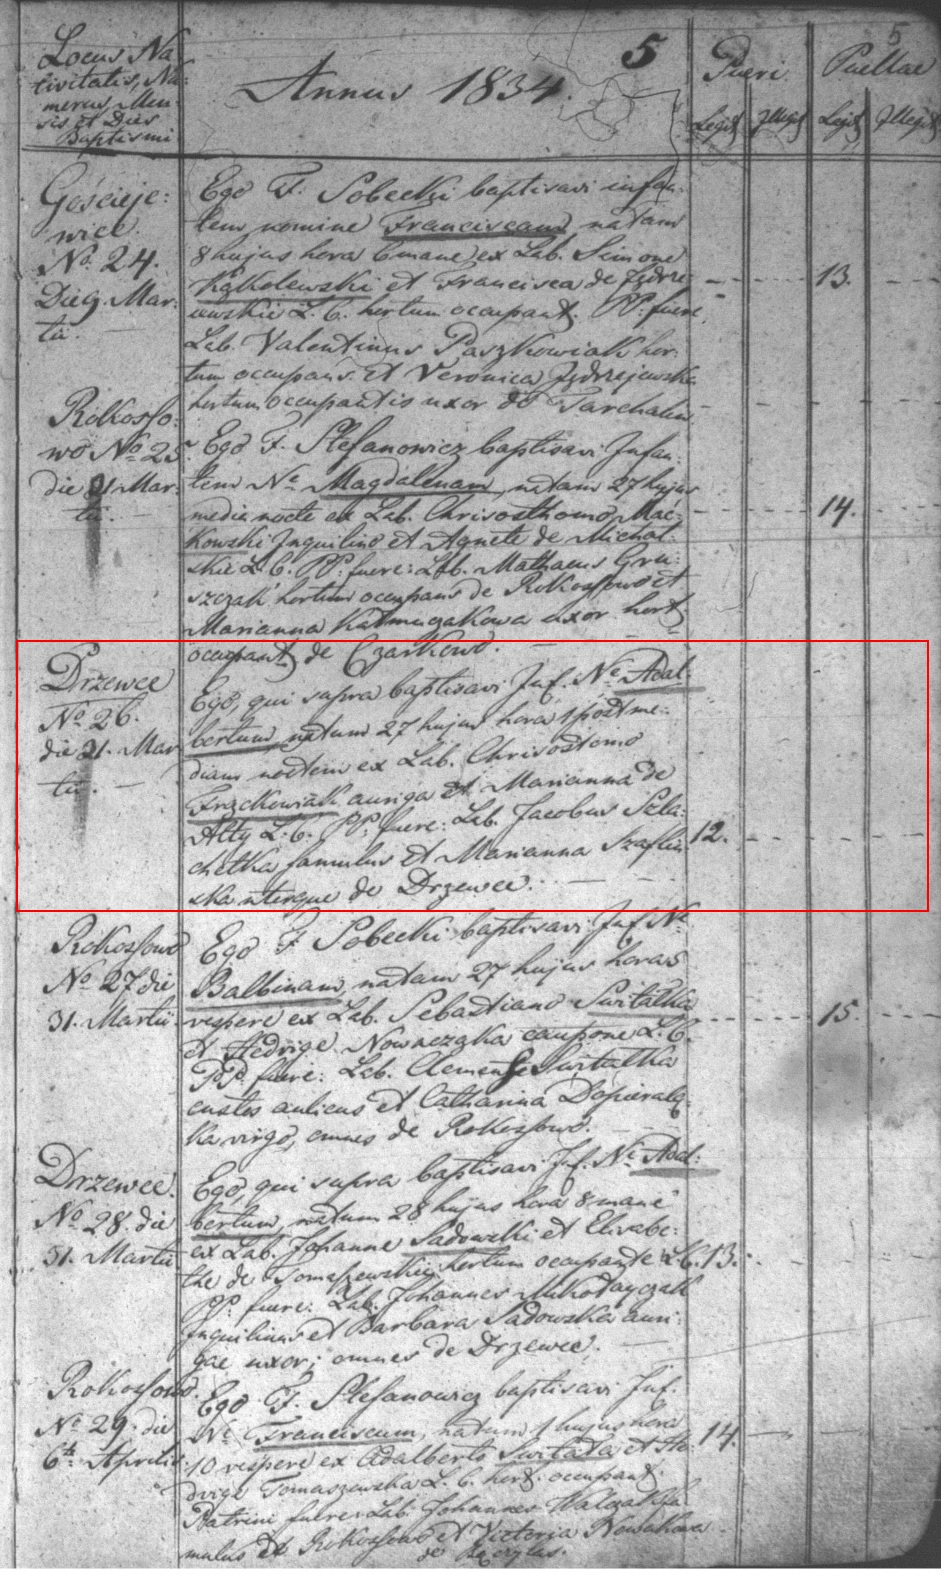 5
5
Locus Na
tivitatis, Nu
merus, Men
sis et Dies
Baptismi
Annus 1834.
Pueri
Puellae
Legit
Illegit
Legit
Illegit
Gościeje-
wice.
No. 24.
Die 9. Mar-
tii.
Ego F. Sobecki baptisavi infan-
tem nomine Franciscam, natam
8 hujus hora 6 mane ex Lab. Simone
Kąkolewski et Francisca de Jędrze-
iewskie L. C. hortum occupant. PP. fuere
Lab. Valentinus Paszkowiak hor-
tum occupans et Veronica Jędrzejewska
hortum occupantis uxor de Tarchalin
13.
Rokosso-
wo No. 25.
die 31 Mar-
tii.
Ego F. Stefanowicz baptisavi Infan-
tem Ne Magdalenam, natam 27 hujus
media nocte ex Lab. Chrisosthomo Mac-
kowski Inquilino et Agnete de Michal-
skie L. C. PP. fuere: Lab. Mathaeus Gru-
szczak hortum occupans de Rokossowo et
Marianna uxor hort
occupant de Czarkowo.
14.
Drzewce
No 26.
die 31. Mar
tii.
Ego, qui supra baptisavi Inf. Ne Adal-
bertum, natum 27 hujus hora 1 post me-
diam noctem ex Lab. Chrisostomo
Frąckowiak auriga et Marianna de
Alty L. C. PP. fuere: Lab. Jacobus Szla-
chetka famulus et Marianna Szaflin
ska uterque de Drzewce.
12.
Rokossowo
No 27 die
31. Martii.
Ego F Sobecki baptisavi Inf Ne
Balbinam, natam 27 hujus hora 5
vespere ex Lab. Sebastiano Switalka
et Hedvige Nowaczka caupone L. C.
PP. fuere: Lab. Clemens Switalka
custos aulicus et Catharina Dopierals-
ka virgo, omnes de Rokossowo.
15.
Drzewce.
No 28. die
31. Martii
Ego, qui supra baptisavi Inf. Ne Adal-
bertum, natum 28 hujus hora 8 mane
ex Lab. Johanne Sadowski et Elisabe-
the de Tomaszewskie hortum occupante L. C.
PP. fuere: Lab. Johannes Mikołayczak
Inquilinus et Barbara Sadowska auri-
gae uxor; omnes de Drzewce.
13.
Rokossowo.
No 29. die
6ta Aprilis.
Ego F. Stefanowicz baptisavi Inf.
Ne Franciscum, natum 1 hujus hora
10 vespere ex Adalberto Switała et He-
dvige Tomaszewska L. C. hort. occupant.
Patrini fuere Lab. Johannes Walczak fa-
mulus de Rokossowo et Victoria Nowakowa
14.